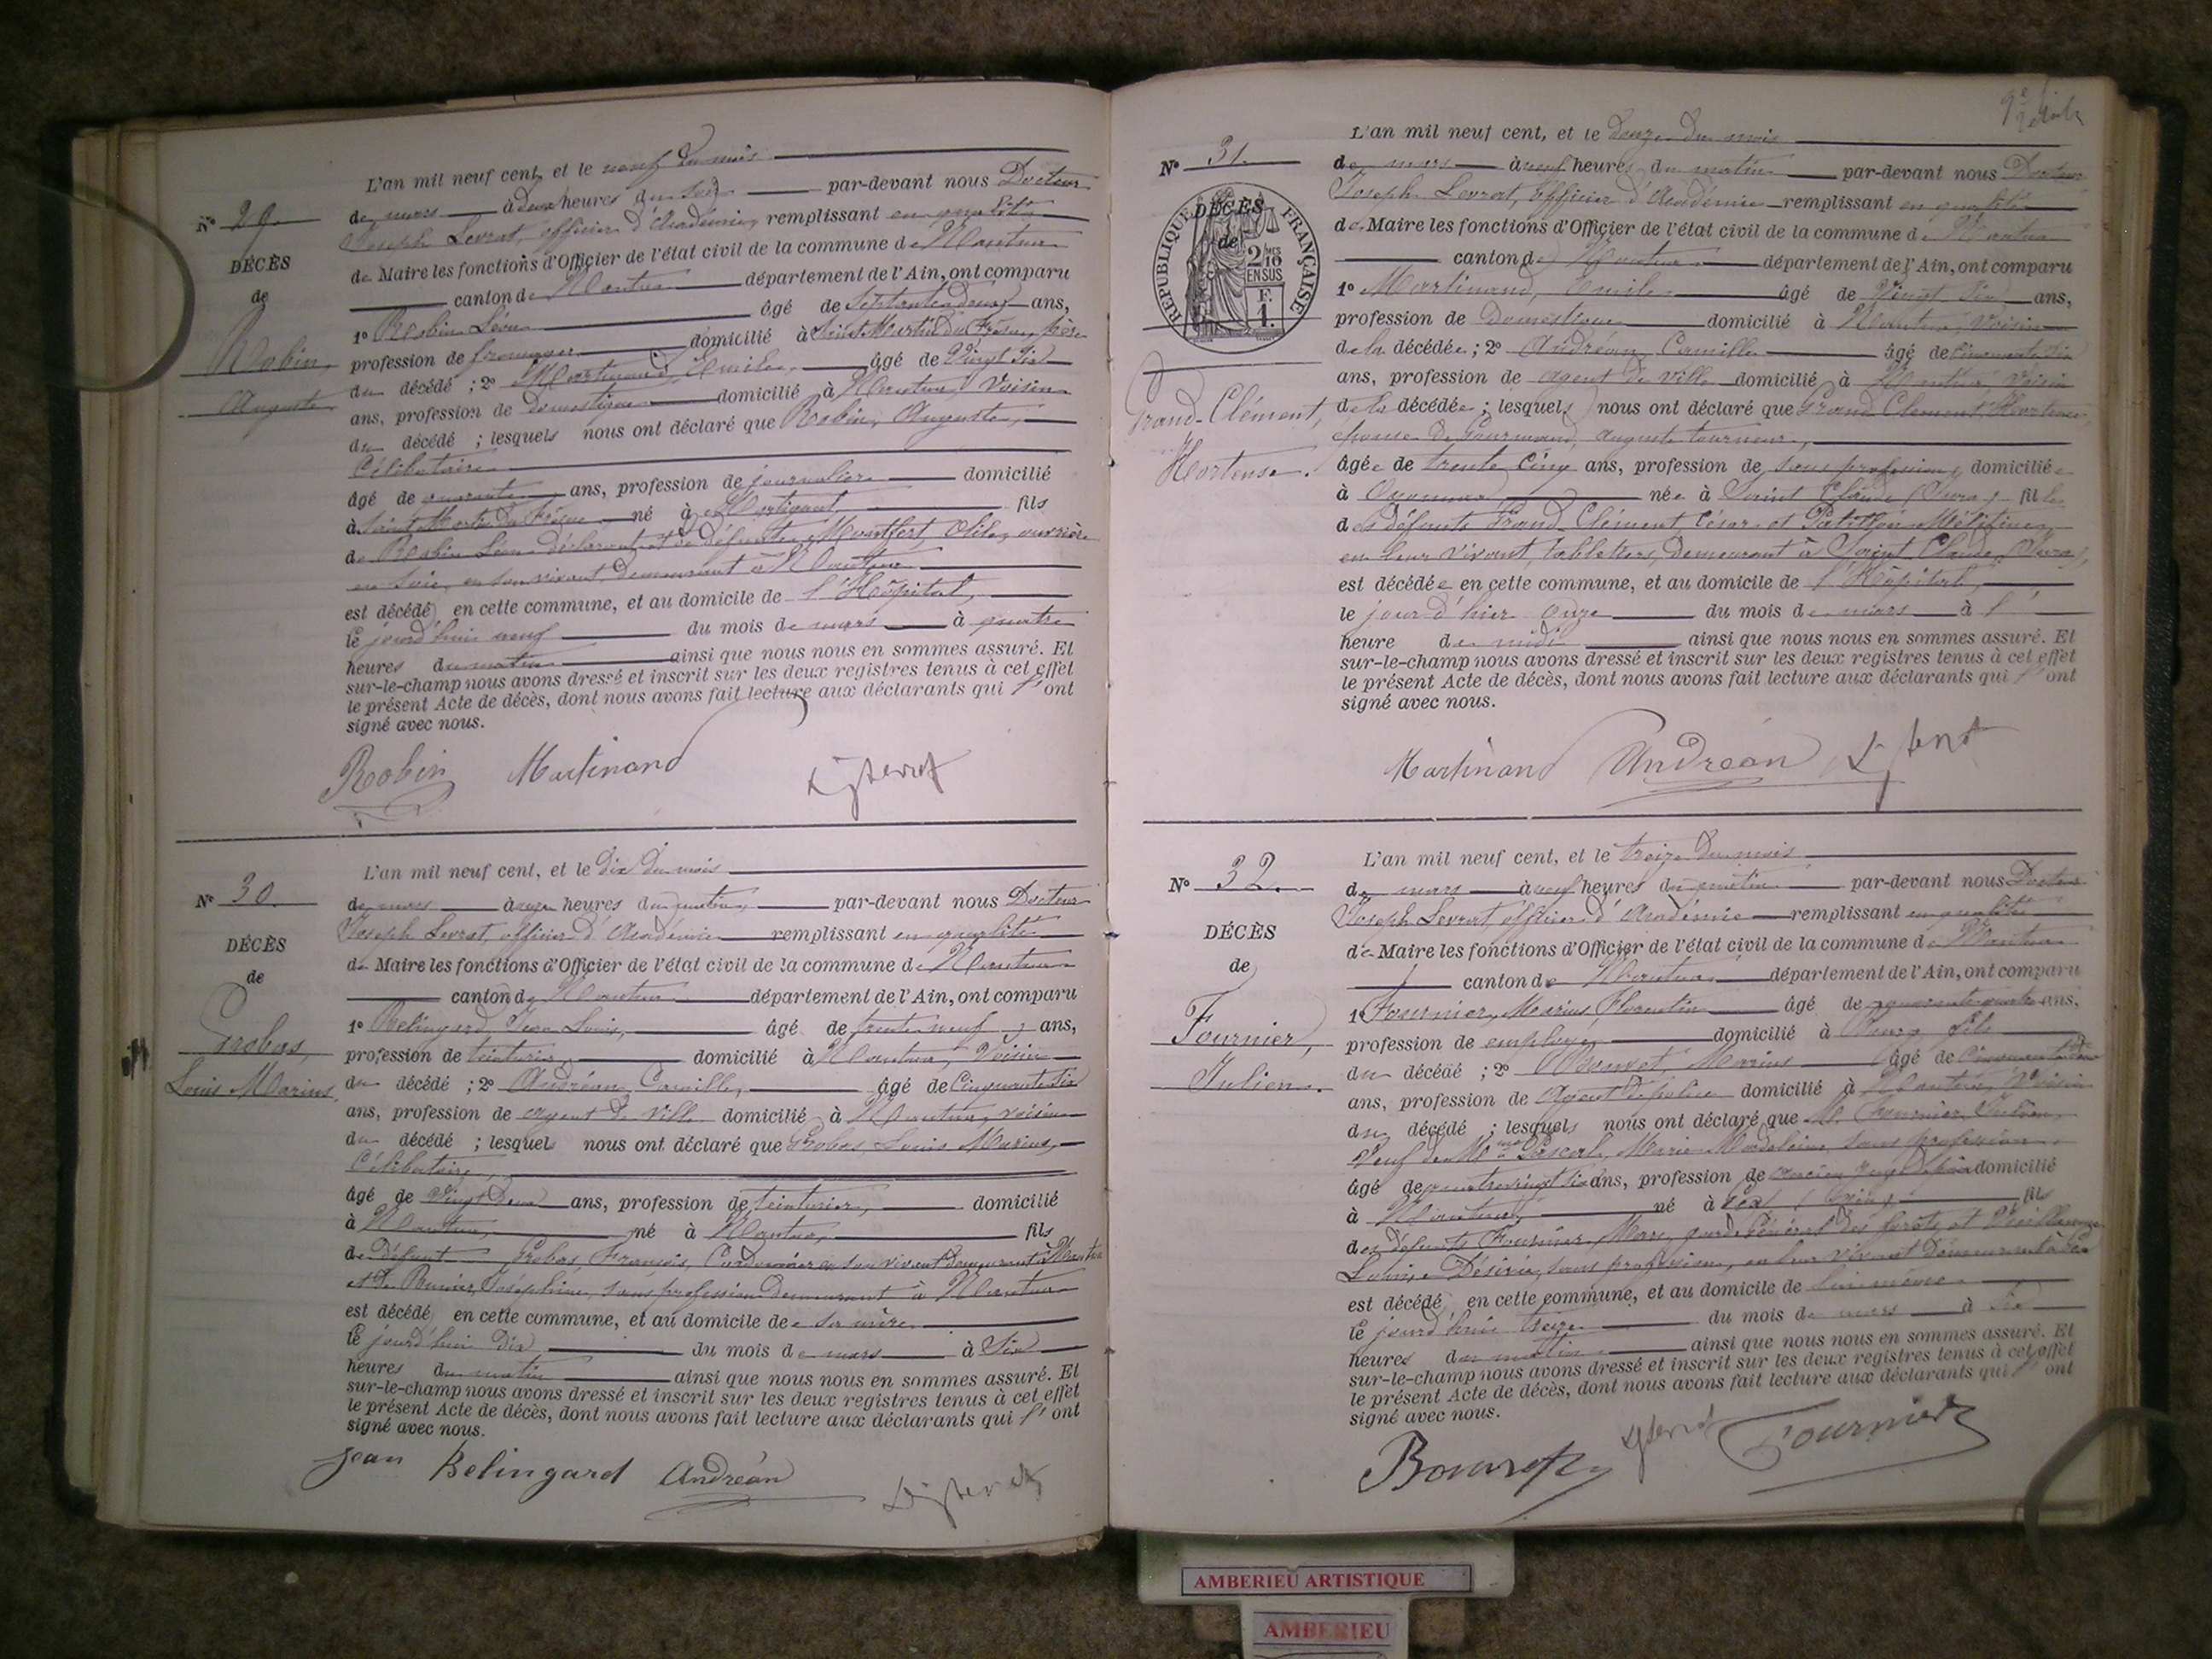 L'an mil neuf cent, et le neuf du mois
de mars à deux heures du soir par-devant nous Docteur
Joseph Levrat, officier d'Académie, remplissant en qualité
de Maire les fonctions d'Officier de l'état civil de la commune de Nantua
canton de Nantua département de l'Ain, ont comparu
1º Robin Léon âgé de septante deux ans,
profession de fromager domicilié à Saint Martin du Frêne, père
du décédé ; 2º Martinand, Emile, âgé de Vingt six
ans, profession de domestique domicilié à Nantua, Voisin
du décédé ; lesquels nous ont déclaré que Robin, Auguste,
Célibataire
âgé de quarante ans, profession de journalier domicilié
à Saint Martin du Frêne né à Martignat, fils
de Robin Léon déclarant et de défunte Montfort, ouvrière
en soie, en son vivant demeurant à Nantua
est décédé en cette commune, et au domicile de l'Hôpital,
le jourd'hui neuf du mois de mars à quatre
heures du matin ainsi que nous nous en sommes assuré. Et
sur-le-champ nous avons dressé et inscrit sur les deux registres tenus à cet effet
le présent Acte de décès, dont nous avons fait lecture aux déclarants qui l'ont
signé avec nous.
Nº 29
DÉCÈS
de
Robin,
Auguste
Robin Martinand
L'an mil neuf cent, et le dix du mois
de mars à onze heures du matin par-devant nous Docteur
Joseph Levrat, officier d'Académie remplissant en qualité
de Maire les fonctions d'Officier de l'état civil de la commune de Nantua
canton de Nantua département de l'Ain, ont comparu
1º Belingard, Jean Louis, âgé de trente neuf ans,
profession de teinturier, domicilié à Nantua, Voisin
du décédé ; 2º Andréan, Camille, âgé de Cinquante six
ans, profession de agent de ville domicilié à Nantua, voisin
du décédé ; lesquel nous ont déclaré que Grobas, Louis Marius,
Célibataire,
âgé de Vingt Deux ans, profession de teinturier, domicilié
à Nantua, né à Nantua, fils
de Défunt Grobas, François, Cordonnier en son vivant demeurant à Nantua
et de Joséphine, sans profession demeurant à Nantua
est décédé en cette commune, et au domicile de sa mère
le jourd'hui dix du mois de mars à Six
heures du matin ainsi que nous nous en sommes assuré. Et
sur-le-champ nous avons dressé et inscrit sur les deux registres tenus à cet effet
le présent Acte de décès, dont nous avons fait lecture aux déclarants qui l'ont
signé avec nous.
Nº 30
DÉCÈS
de
Grobas,
Louis Marius.
Jean Belingard Andréan
L'an mil neuf cent, et le douze du mois
de mars à neuf heures du matin par-devant nous Docteur
Joseph Levrat, Officier d'Académie remplissant en qualité
de Maire les fonctions d'Officier de l'état civil de la commune de Nantua
canton de Nantua département de l'Ain, ont comparu
1º Martinand, Emile âgé de Vingt Six ans,
profession de Domestique domicilié à Nantua, Voisin
de la décédée ; 2º Andréan, Camille âgé de Cinquante Six
ans, profession de agent de ville domicilié à Nantua, Voisin
de la décédée ; lesquels nous ont déclaré que Grand Clément Hortense,
épouse de Gourmand, Auguste tourneur,
âgée de trente Cinq ans, profession de sans profession, domiciliée
à Oyonnax née à Saint Claude (Jura) fille
des défunts Grand-Clément César et
en leur vivant, tabletiers, demeurant à Saint Claude (Jura),
est décédée en cette commune, et au domicile de l'Hôpital,
le jour d'hier onze du mois de mars à l'
heure de midi ainsi que nous nous en sommes assuré. Et
sur-le-champ nous avons dressé et inscrit sur les deux registres tenus à cet effet
le présent Acte de décès, dont nous avons fait lecture aux déclarants qui l'ont
signé avec nous.
Nº 31.
DÉCÈS
de
RÉPUBLIQUE FRANÇAISE
2/10 MES
EN SUS
F.
1.
Grand-Clément,
Hortense.
Martinand Andréan
L'an mil neuf cent, et le treize du mois
de mars à neuf heures du matin par-devant nous Docteur
Joseph Levrat, officier d'Académie remplissant en qualité
de Maire les fonctions d'Officier de l'état civil de la commune de Nantua
canton de Nantua département de l'Ain, ont comparu
1º Fournier, Marius Florentin âgé de quarante quatre ans,
profession de employé domicilié à Bourg fils
du décédé ; 2º Bouvret, Marius âgé de Cinquante
ans, profession de Agent de police domicilié à Nantua, Voisin
du décédé ; lesquels nous ont déclaré que M. Fournier, Julien,
Veuf de Mme Pascal, Marie Madeleine, sans profession,
âgé de quatre vingt six ans, profession de ancien domicilié
à Nantua né à Gex (Ain) fils
des défunts Fournier garde Général des forêts, et
Désirée, sans profession, en leur vivant demeurant à Gex
est décédé en cette commune, et au domicile de lui même
le jourd'hui treize du mois de mars à six
heures du matin ainsi que nous nous en sommes assuré. Et
sur-le-champ nous avons dressé et inscrit sur les deux registres tenus à cet effet
le présent Acte de décès, dont nous avons fait lecture aux déclarants qui l'ont
signé avec nous.
Nº 32.
DÉCÈS
de
Fournier,
Julien.
Bouvret Fournier
AMBERIEU ARTISTIQUE
AMBERIEU